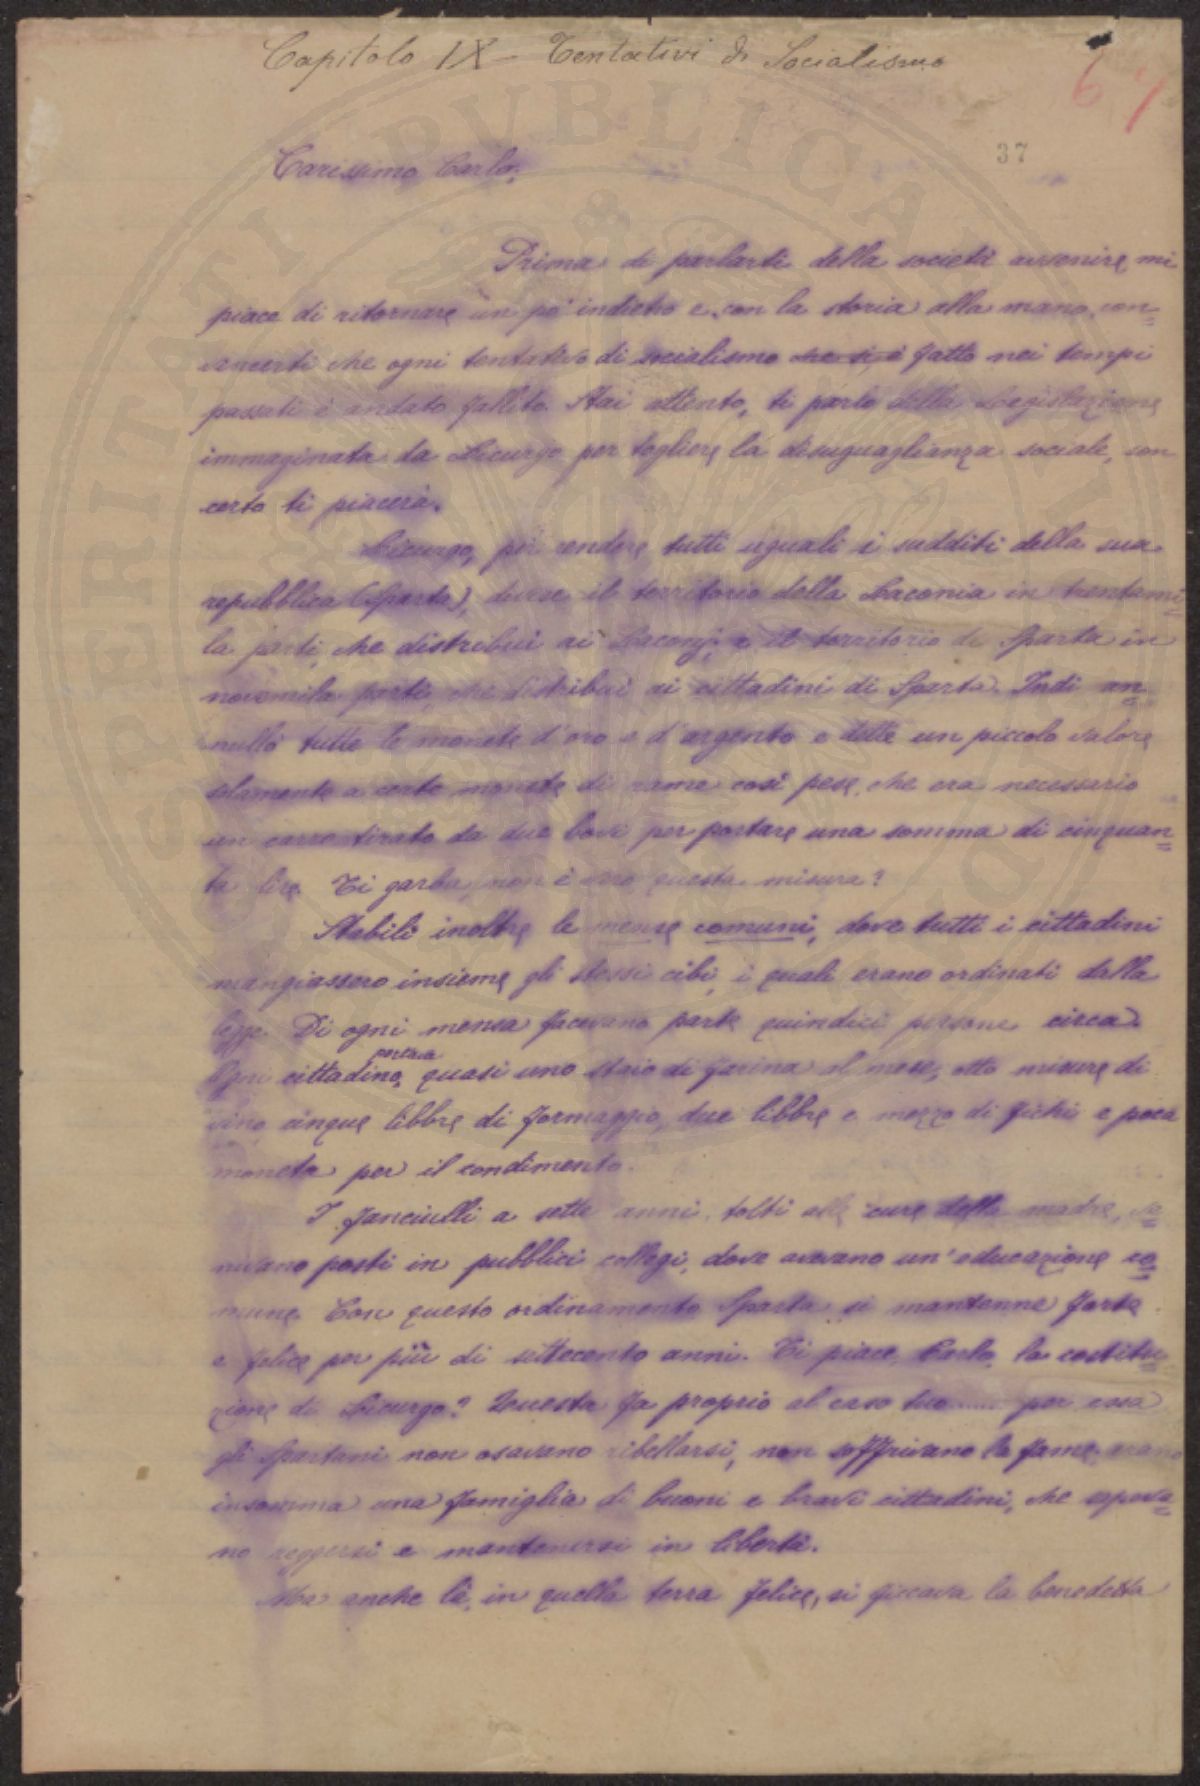 Capitolo IX - Tentativi di Socialismo
67
37
Carissimo Carlo,
Prima di parlarti della società avvenire, mi
piace di ritornare un pò indietro e, con la storia alla mano, con=
vincerti che ogni tentativo di socialismo che si è fatto nei tempi
passati è andato fallito. Stai attento, ti parlo della Legislazione
immaginata da Licurgo per togliere la disuguaglianza sociale, son
certo ti piacerà.
Licurgo, per rendere tutti uguali i sudditi della sua
repubblica (Sparta), divise il territorio della Laconia in trentami=
la parti, che distribuì ai Laconj, e il territorio di Sparta in
novemila parti, che distribuì ai cittadini di Sparta. Indi an=
nullò tutte le monete d'oro e d'argento e dette un piccolo valore
solamente a certe monete di rame così pese, che era necessario
un carro tirato da due bovi per portare una somma di cinquan=
ta lire. Ti garba, non è vero questa misura?
Stabilì inoltre le mense comuni, dove tutti i cittadini
mangiassero insieme gli stessi cibi, i quali erano ordinati dalla
legge. Di ogni mensa facevano parte quindici persone circa.
Ogni cittadino, portava quasi uno staio di farina al mese, otto misure di
vino, cinque libbre di formaggio, due libbre e mezzo di fichi e poca
moneta per il condimento.
I fanciulli a sette anni, tolti alle cure della madre, ve=
nivano posti in pubblici collegi, dove avevano un'educazione co=
mune. Con questo ordinamento Sparta si mantenne forte
e felice per più di settecento anni. Ti piace, Carlo, la costitu=
zione di Licurgo? Questa fa proprio al caso tuo...... per essa
gli Spartani non osavano ribellarsi, non soffrivano la fame, erano
insomma una famiglia di buoni e bravi cittadini, che sapeva=
no reggersi e mantenersi in libertà.
Ma anche là, in quella terra felice, si ficcava la benedetta